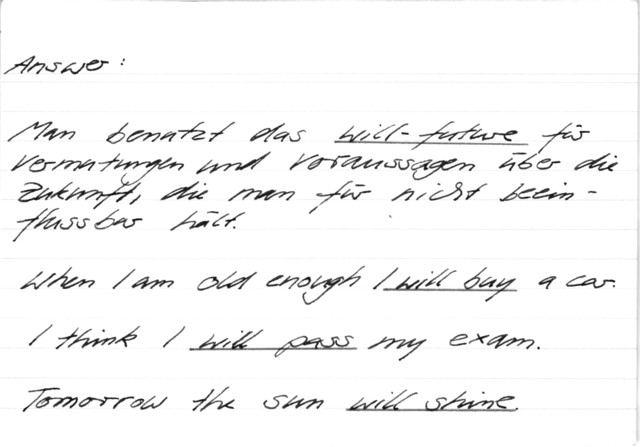 Answer:
Man benutzt das will-future für
Vermutungen und Voraussagen über die
Zukunft, die man für nicht beein-
flussbar hält.
When I am old enough I will buy a car.
I think I will pass my exam.
Tomorrow the sun will shine.